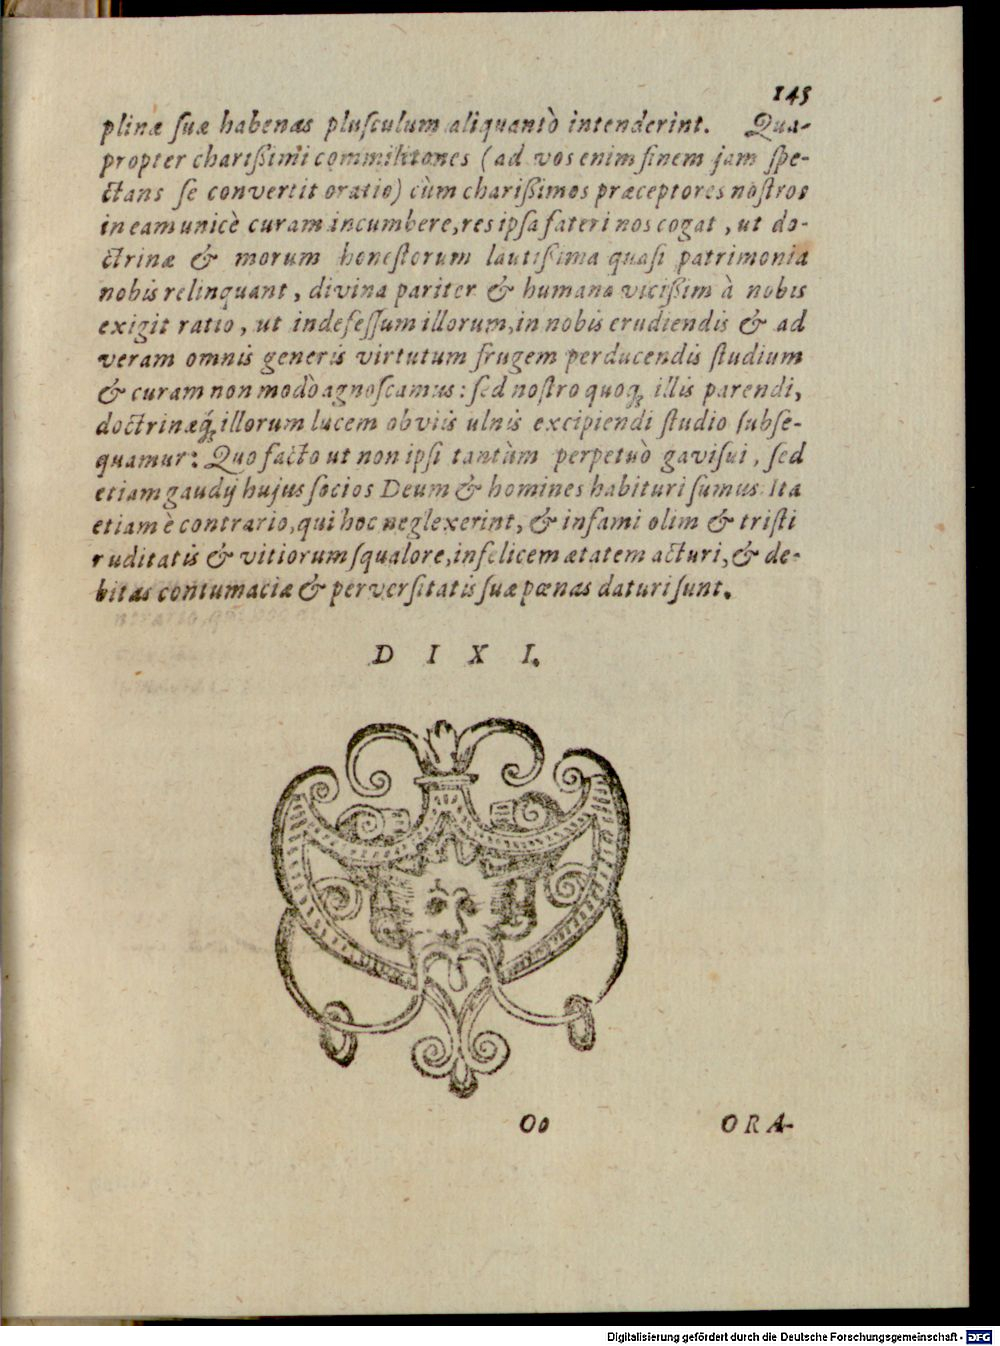 145
plinæ ſuæ habenas pluſculum aliquantò intenderint. Qua-
propter chariſſimi commilitones (ad vos enim finem jam ſpe-
ctans ſe convertit oratio) cùm chariſſimos præceptores noſtros
in eam unicè curam incumbere, res ipſa fateri nos cogat, ut do-
ctrinæ & morum honeſtorum lautiſſima quaſi patrimonia
nobis relinquant, divina pariter & humana viciſſim à nobis
exigit ratio, ut indefeſſum illorum, in nobis erudiendis & ad
veram omnis generis virtutum frugem perducendis ſtudium
& curam non modò agnoſcamus: ſed noſtro quoq; illis parendi,
doctrinæq́; illorum lucem obviis ulnis excipiendi ſtudio ſubſe-
quamur: Quo facto ut non ipſi tantùm perpetuò gaviſui, ſed
etiam gaudij hujus ſocios Deum & homines habituri ſumus. Ita
etiam è contrario, qui hoc neglexerint, & infami olim & triſti
ruditatis & vitiorum ſqualore, infelicem ætatem acturi, & de-
bitas contumaciæ & perverſitatis ſuæ pœnas daturi ſunt.
D I X I.
Oo ORA-
Digitalisierung gefördert durch die Deutsche Forschungsgemeinschaft - DFG